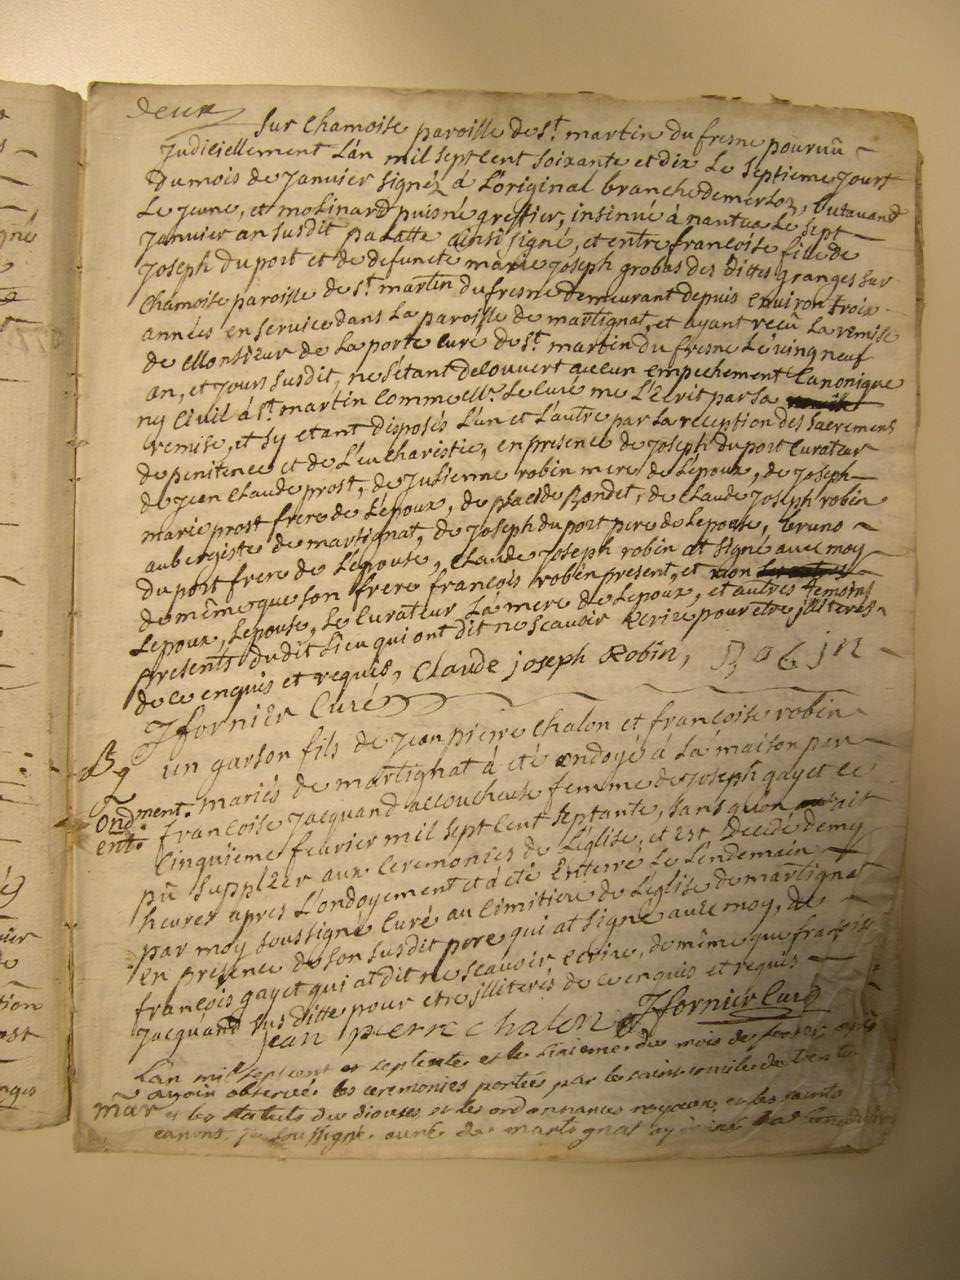 deux
sur Chamoise paroisse de St. martin du fresne pourvû
Judiciellement L'an mil sept cent soixante et dix Le septieme Jourt
du mois de Janvier signéz á L'original branche demerloz, butavand
Le jeune, et molinard puisné greffier, insinué á nantua Le sept
Janvier an susdit ainsi signé, et entre françoise fille de
Joseph duport et de defuncte marie Joseph grobas des dittes granges sur
Chamoise paroisse de St. martin du fresne demeurant depuis environ trois
années en service dans La paroisse de martignat, et ayant reçû La remise
de Monsieur de La porte Curé de St. martin du fresne Le vingneuf
an, et jours susdit, ne s'étant decouvert aucun empechement Canonique
ny Civil á St. martin comme Mr. Le Curé me L'écrit par sa
remise, et s'y etant disposés L'un et L'autre par La reception des sacrements
de penitence et de L'eucharistie, en presence de Joseph duport Curateur
de Jean Claude prost, de Julienne robin mere de L'epoux, de Joseph
marie prost frere de L'epoux, de placide Rondet, de Claude Joseph robin
aubergiste de martignat, de Joseph duport pere de Lepouse, bruno
duport frere de Lepouse, Claude Joseph robin at signé avec moy
de même que son frere françois robin present, et non
Lepoux, Lepouse, Le Curateur La mere de Lepoux, et autres temoins
presents dudit Lieu qui ont dit ne scavoir ecrire pour etre jlliterés
de ce enquis et requis, Claude joseph Robin, Robin
Jfornier Curé
un garson fils de Jean pierre Chalon et françoise robin
mariés de martignat á été ondoyé á La maison par
Ond ment.
ent.
francoise Jacquand accoucheuse femme de Joseph gayet Le
Cinquieme fevrier mil sept cent septante, sans qu'on ait
pû supplzer aux Ceremonies de L'église, et est decédé demy
heures apres L'ondoyement et á été enterré Le Lendemain
par moy soussigné Curé au Cimitiere de L'église de martignat
en presence de son susdit pere qui at signé avec moy, de
françois gayet qui at dit ne scavoir ecrire, de même que françoise
Jacquand susditte pour etre jlliterés de ce enquis et requis
Jean pierre chalon Jfornier Curé
Lan mil sept cent et septente et le sixieme du mois de fevrier après
avoir observé les ceremonies portées par le saint concile de trente
mar
et les statuts du diocese et les ordonnances royaux et les saints
canons, je soussigné curé de martignat ay